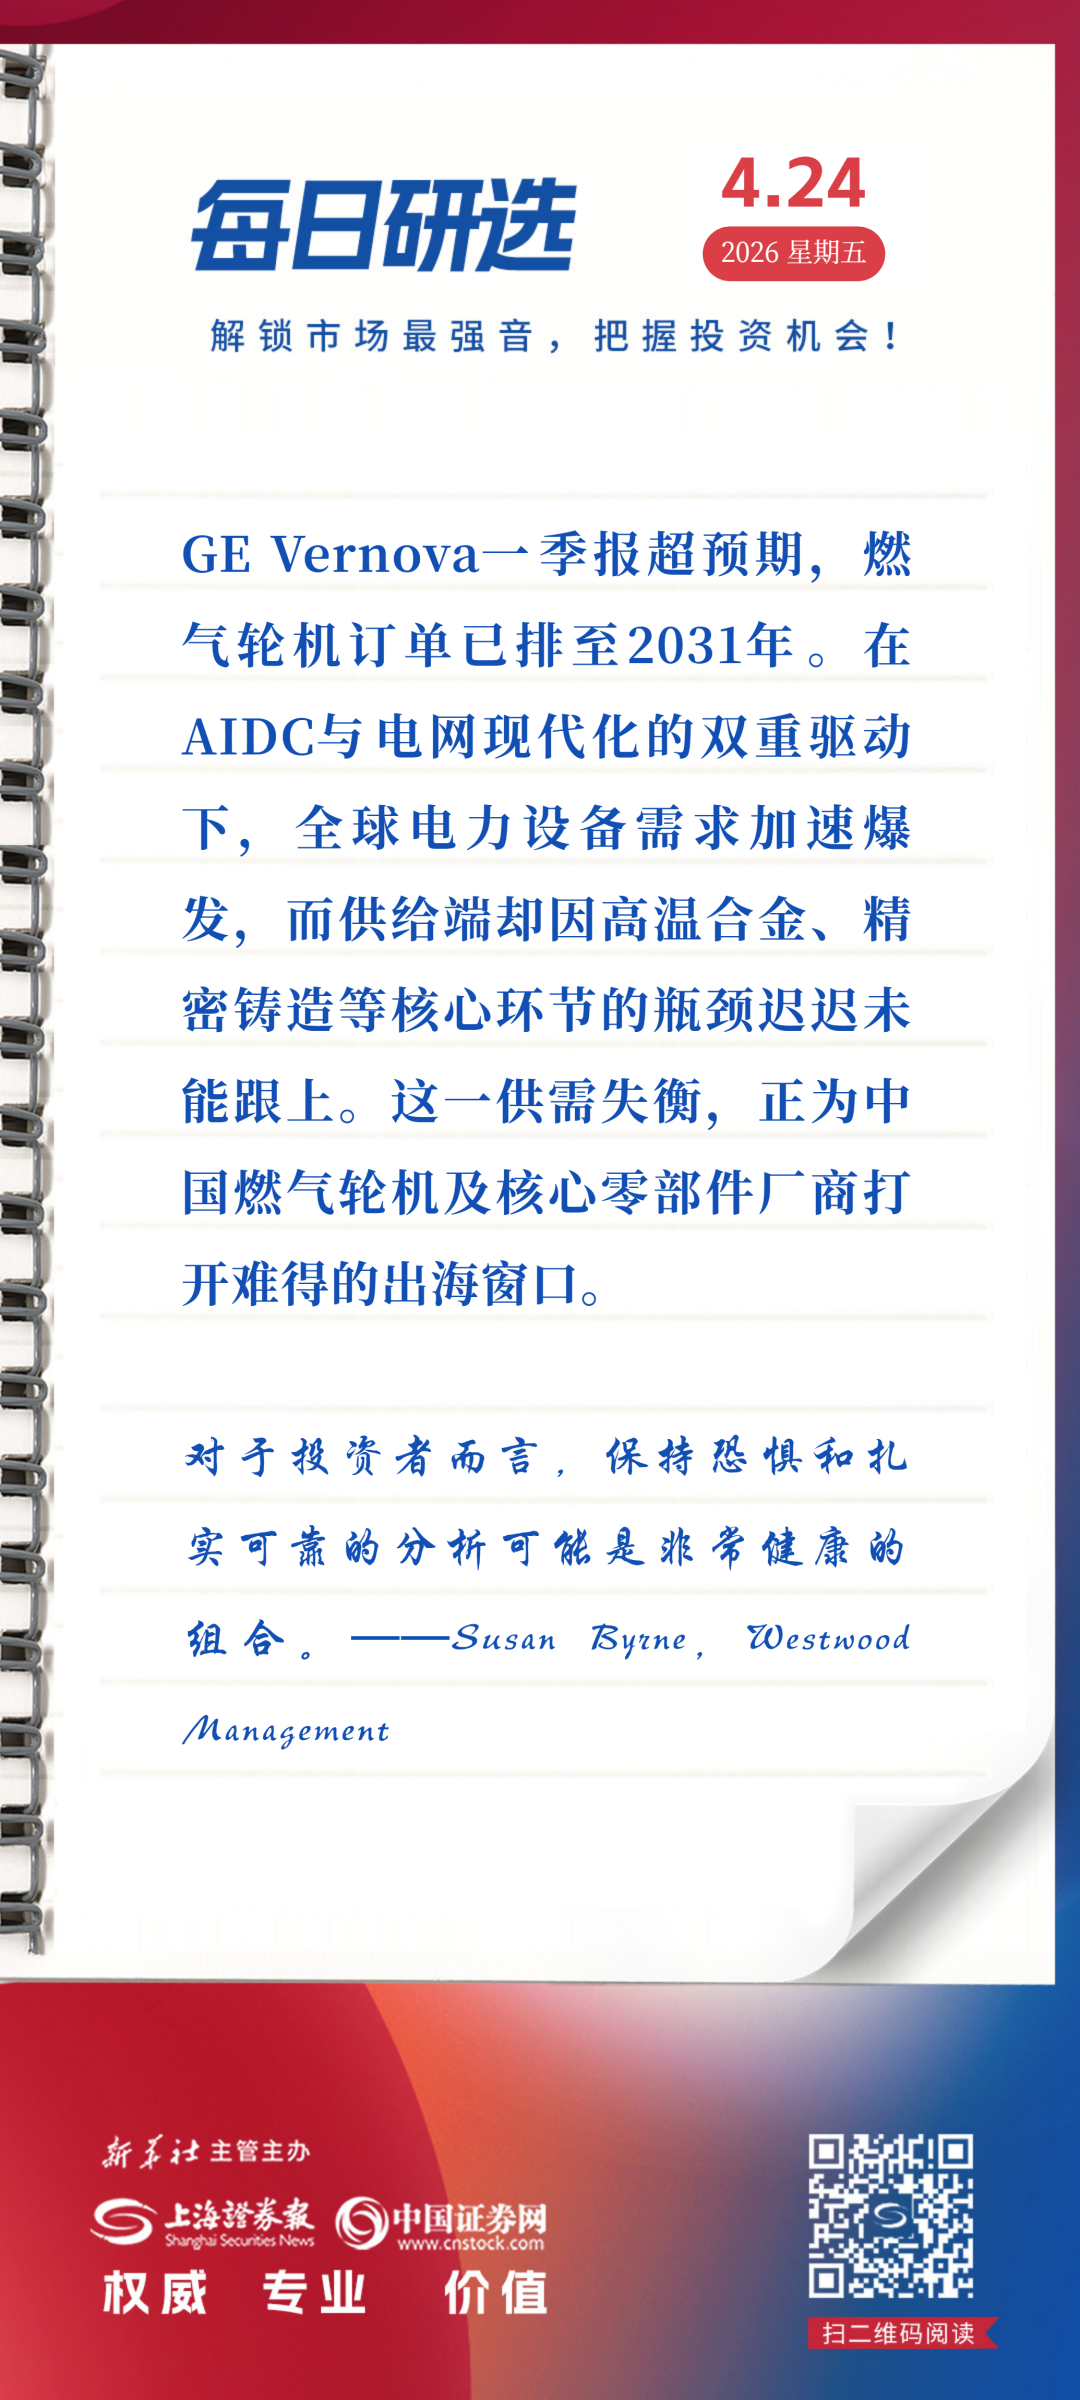 每日研选
4.24
2026 星期五
解锁市场最强音，把握投资机会！
GE Vernova一季报超预期，燃
气轮机订单已排至2031年。在
AIDC与电网现代化的双重驱动
下，全球电力设备需求加速爆
发，而供给端却因高温合金、精
密铸造等核心环节的瓶颈迟迟未
能跟上。这一供需失衡，正为中
国燃气轮机及核心零部件厂商打
开难得的出海窗口。
对于投资者而言，保持恐惧和扎
实可靠的分析可能是非常健康的
组合。——Susan Byrne，Westwood
Management
新华社主管主办
上海證券報 中国证券网
Shanghai Securities News www.cnstock.com
权威 专业 价值
扫二维码阅读